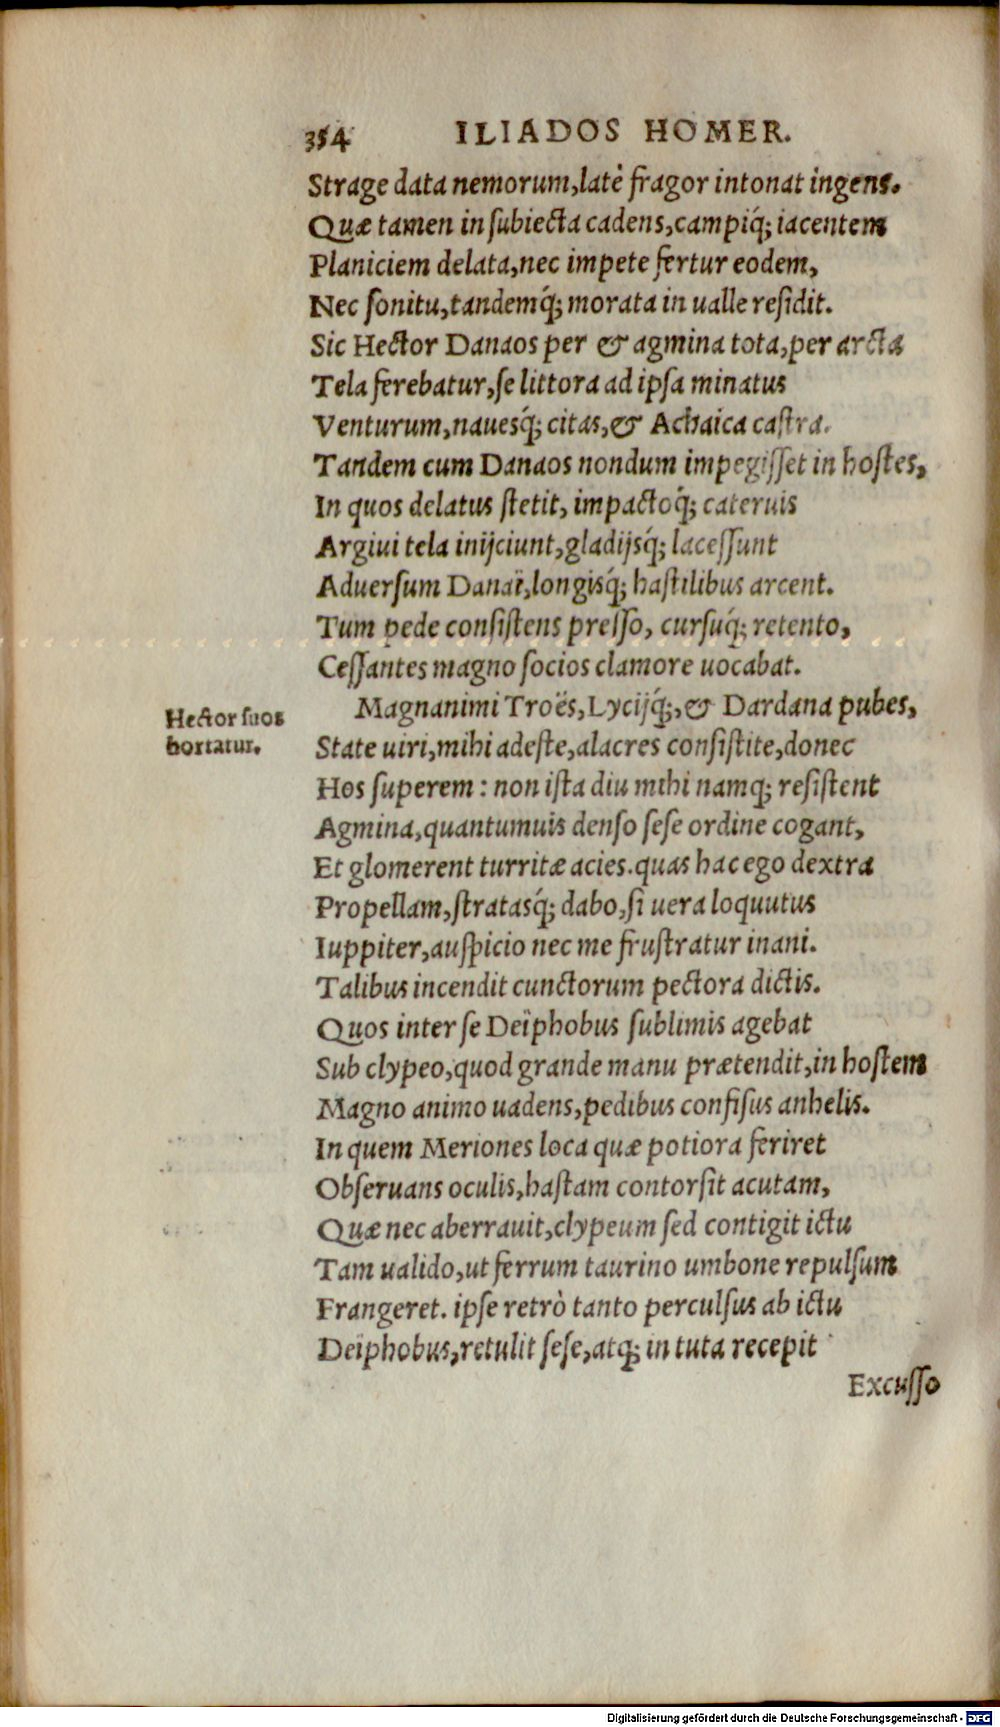 354 ILIADOS HOMER.
Strage data nemorum, latè fragor intonat ingens.
Quæ tamen in ſubiecta cadens, campiq́; iacentem
Planiciem delata, nec impete fertur eodem,
Nec ſonitu, tandemq́; morata in ualle reſidit.
Sic Hector Danaos per & agmina tota, per arcta
Tela ferebatur, ſe littora ad ipſa minatus
Venturum, naueſq́; citas, & Achaica caſtra.
Tandem cum Danaos nondum impegiſſet in hoſtes,
In quos delatus ſtetit, impactoq́; cateruis
Argiui tela inijciunt, gladijsq́; laceſſunt
Aduerſum Danaï, longisq́; haſtilibus arcent.
Tum pede conſiſtens preſſo, curſuq́; retento,
Ceſſantes magno ſocios clamore uocabat.
Magnanimi Troës, Lycijq́;, & Dardana pubes,
Hector ſuos
hortatur.
State uiri, mihi adeſte, alacres conſiſtite, donec
Hos ſuperem: non iſta diu mihi namq; reſiſtent
Agmina, quantumuis denſo ſeſe ordine cogant,
Et glomerent turritæ acies. quas hac ego dextra
Propellam, ſtratasq́; dabo, ſi uera loquutus
Iuppiter, auſpicio nec me fruſtratur inani.
Talibus incendit cunctorum pectora dictis.
Quos inter ſe Deïphobus ſublimis agebat
Sub clypeo, quod grande manu prætendit, in hoſtem
Magno animo uadens, pedibus confiſus anhelis.
In quem Meriones loca quæ potiora feriret
Obſeruans oculis, haſtam contorſit acutam,
Quæ nec aberrauit, clypeum ſed contigit ictu
Tam ualido, ut ferrum taurino umbone repulſum
Frangeret. ipſe retrò tanto perculſus ab ictu
Deiphobus, retulit ſeſe, atq; in tuta recepit
Excuſſo
Digitalisierung gefördert durch die Deutsche Forschungsgemeinschaft - DFG